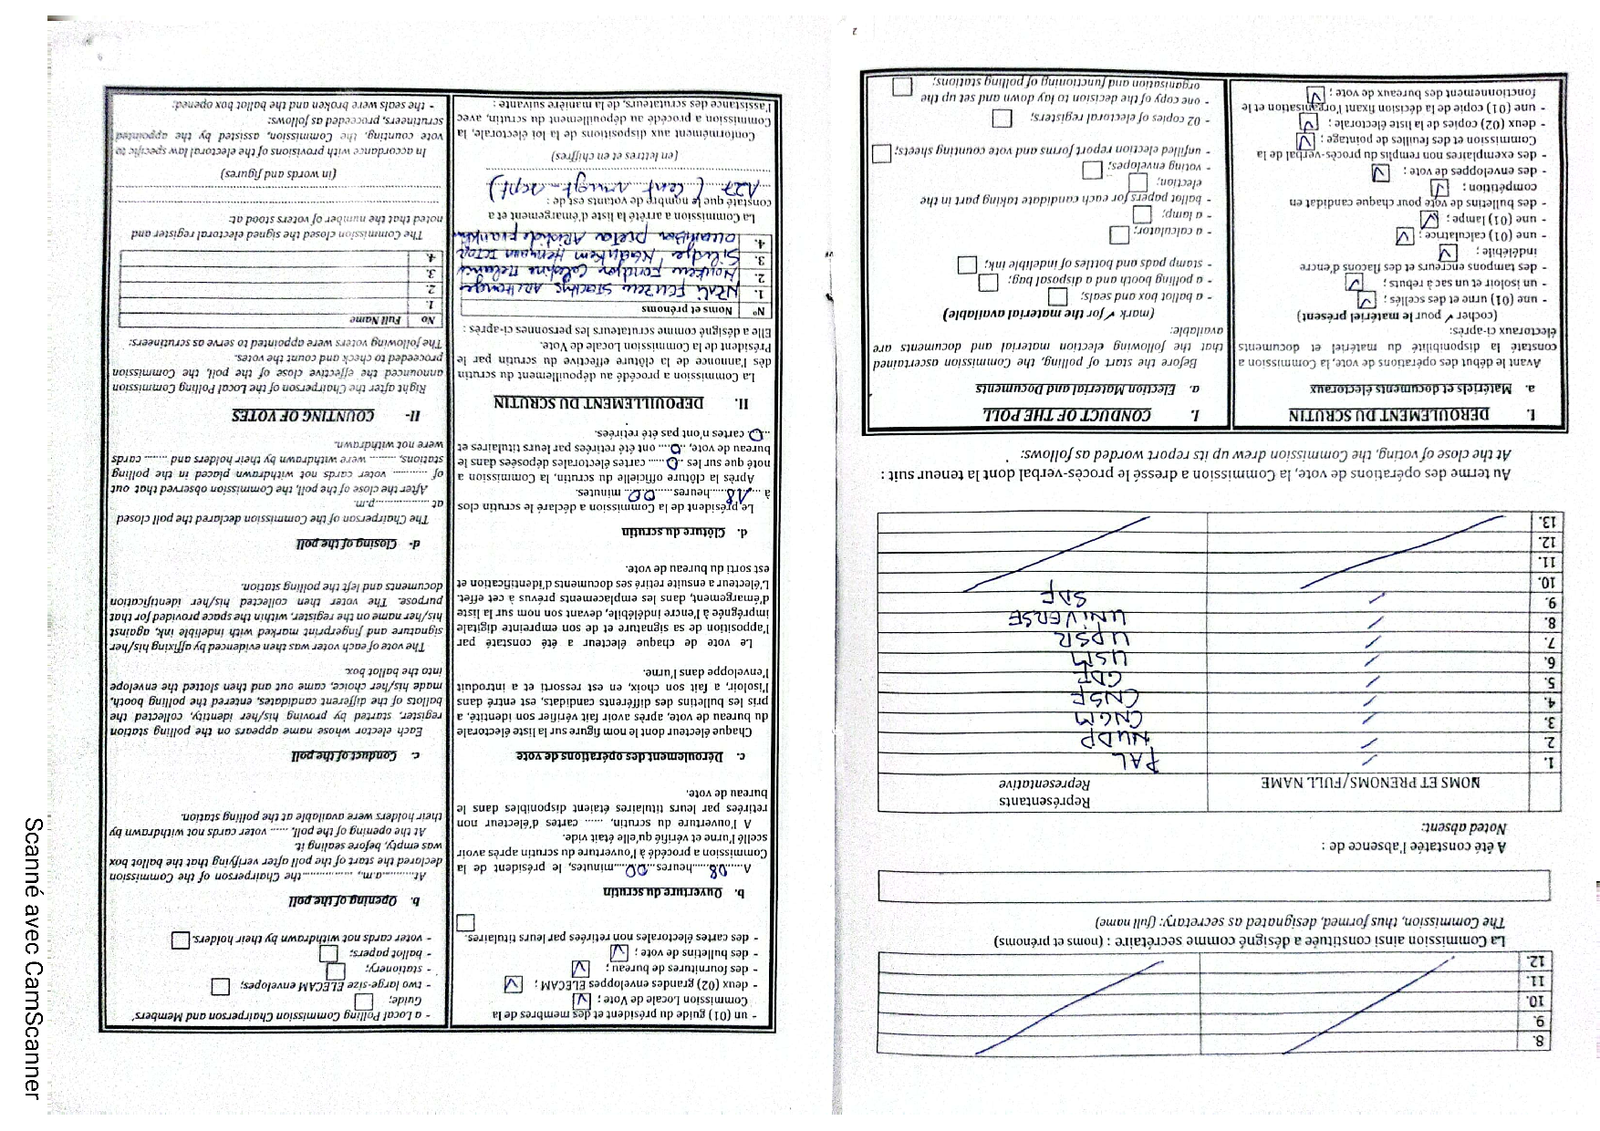 8.
9.
10.
11.
12.
La Commission ainsi constituée a désigné comme secrétaire : (noms et prénoms)
The Commission, thus formed, designated as secretary: (full name)
A été constatée l'absence de :
Noted absent:
NOMS ET PRENOMS/FULL NAME
Représentants
Representative
1. PAL
2. NUDP
3. CNGM
4. CNSF
5. GDF
6. USM
7. UPSR
8. UNIVERSE
9. SDF
10.
11.
12.
13.
Au terme des opérations de vote, la Commission a dressé le procès-verbal dont la teneur suit :
At the close of voting, the Commission drew up its report worded as follows:
I. DEROULEMENT DU SCRUTIN
a. Matériels et documents électoraux
Avant le début des opérations de vote, la Commission a
constaté la disponibilité du matériel et documents
électoraux ci-après:
(cocher ✓ pour le matériel présent)
- une (01) urne et des scellés ;
- un isoloir et un sac à rebuts ;
- des tampons encreurs et des flacons d'encre
indélébile ;
- une (01) calculatrice ;
- une (01) lampe ;
- des bulletins de vote pour chaque candidat en
compétition ;
- des enveloppes de vote ;
- des exemplaires non remplis du procès-verbal de la
Commission et des feuilles de pointage ;
- deux (02) copies de la liste électorale ;
- une (01) copie de la décision fixant l'organisation et le
fonctionnement des bureaux de vote ;
I. CONDUCT OF THE POLL
a. Election Material and Documents
Before the start of polling, the Commission ascertained
that the following election material and documents are
available:
(mark ✓ for the material available)
- a ballot box and seals;
- a polling booth and a disposal bag;
- stamp pads and bottles of indelible ink;
- a calculator;
- a lamp;
- ballot papers for each candidate taking part in the
election;
- voting envelopes;
- unfilled election report forms and vote counting sheets;
- 02 copies of electoral registers;
- one copy of the decision to lay down and set up the
organisation and functioning of polling stations;
2
- un (01) guide du président et des membres de la
Commission Locale de Vote ;
- deux (02) grandes enveloppes ELECAM ;
- des fournitures de bureau ;
- des bulletins de vote ;
- des cartes électorales non retirées par leurs titulaires.
b. Ouverture du scrutin
A 08 heures 00 minutes, le président de la
Commission a procédé à l'ouverture du scrutin après avoir
scellé l'urne et vérifié qu'elle était vide.
A l'ouverture du scrutin, ...... cartes d'électeur non
retirées par leurs titulaires étaient disponibles dans le
bureau de vote.
c. Déroulement des opérations de vote
Chaque électeur dont le nom figure sur la liste électorale
du bureau de vote, après avoir fait vérifier son identité, a
pris les bulletins des différents candidats, est entré dans
l'isoloir, a fait son choix, en est ressorti et a introduit
l'enveloppe dans l'urne.
Le vote de chaque électeur a été constaté par
l'apposition de sa signature et de son empreinte digitale
imprégnée à l'encre indélébile, devant son nom sur la liste
d'émargement, dans les emplacements prévus à cet effet.
L'électeur a ensuite retiré ses documents d'identification et
est sorti du bureau de vote.
d. Clôture du scrutin
Le président de la Commission a déclaré le scrutin clos
à 18 heures 00 minutes.
Après la clôture officielle du scrutin, la Commission a
noté que sur les 0 cartes électorales déposées dans le
bureau de vote, 0 ont été retirées par leurs titulaires et
0 cartes n'ont pas été retirées.
II. DEPOUILLEMENT DU SCRUTIN
La Commission a procédé au dépouillement du scrutin
dès l'annonce de la clôture effective du scrutin par le
Président de la Commission Locale de Vote.
Elle a désigné comme scrutateurs les personnes ci-après :
N° Noms et prénoms
1.
2. Celestine Melanie
3. Hermann
4. Aristide Franklin
La Commission a arrêté la liste d'émargement et a
constaté que le nombre de votants est de :
127 (cent vingt-sept)
(en lettres et en chiffres)
Conformément aux dispositions de la loi électorale, la
Commission a procédé au dépouillement du scrutin, avec
l'assistance des scrutateurs, de la manière suivante :
- a Local Polling Commission Chairperson and Members'
Guide;
- two large-size ELECAM envelopes;
- stationery;
- ballot papers;
- voter cards not withdrawn by their holders.
b. Opening of the poll
At............a.m., ..................the Chairperson of the Commission
declared the start of the poll after verifying that the ballot box
was empty, before sealing it.
At the opening of the poll, ...... voter cards not withdrawn by
their holders were available at the polling station.
c. Conduct of the poll
Each elector whose name appears on the polling station
register, started by proving his/her identity, collected the
ballots of the different candidates, entered the polling booth,
made his/her choice, came out and then slotted the envelope
into the ballot box.
The vote of each voter was then evidenced by affixing his/her
signature and fingerprint marked with indelible ink, against
his/her name on the register, within the space provided for that
purpose. The voter then collected his/her identification
documents and left the polling station.
d- Closing of the poll
The Chairperson of the Commission declared the poll closed
at ..................p.m.
After the close of the poll, the Commission observed that out
of ............ voter cards not withdrawn placed in the polling
stations, ........ were withdrawn by their holders and ....... cards
were not withdrawn.
II- COUNTING OF VOTES
Right after the Chairperson of the Local Polling Commission
announced the effective close of the poll, the Commission
proceeded to check and count the votes.
The following voters were appointed to serve as scrutineers:
No Full Name
1.
2.
3.
4.
The Commission closed the signed electoral register and
noted that the number of voters stood at:
(in words and figures)
In accordance with provisions of the electoral law specific to
vote counting, the Commission, assisted by the appointed
scrutineers, proceeded as follows:
- the seals were broken and the ballot box opened;
Scanné avec CamScanner